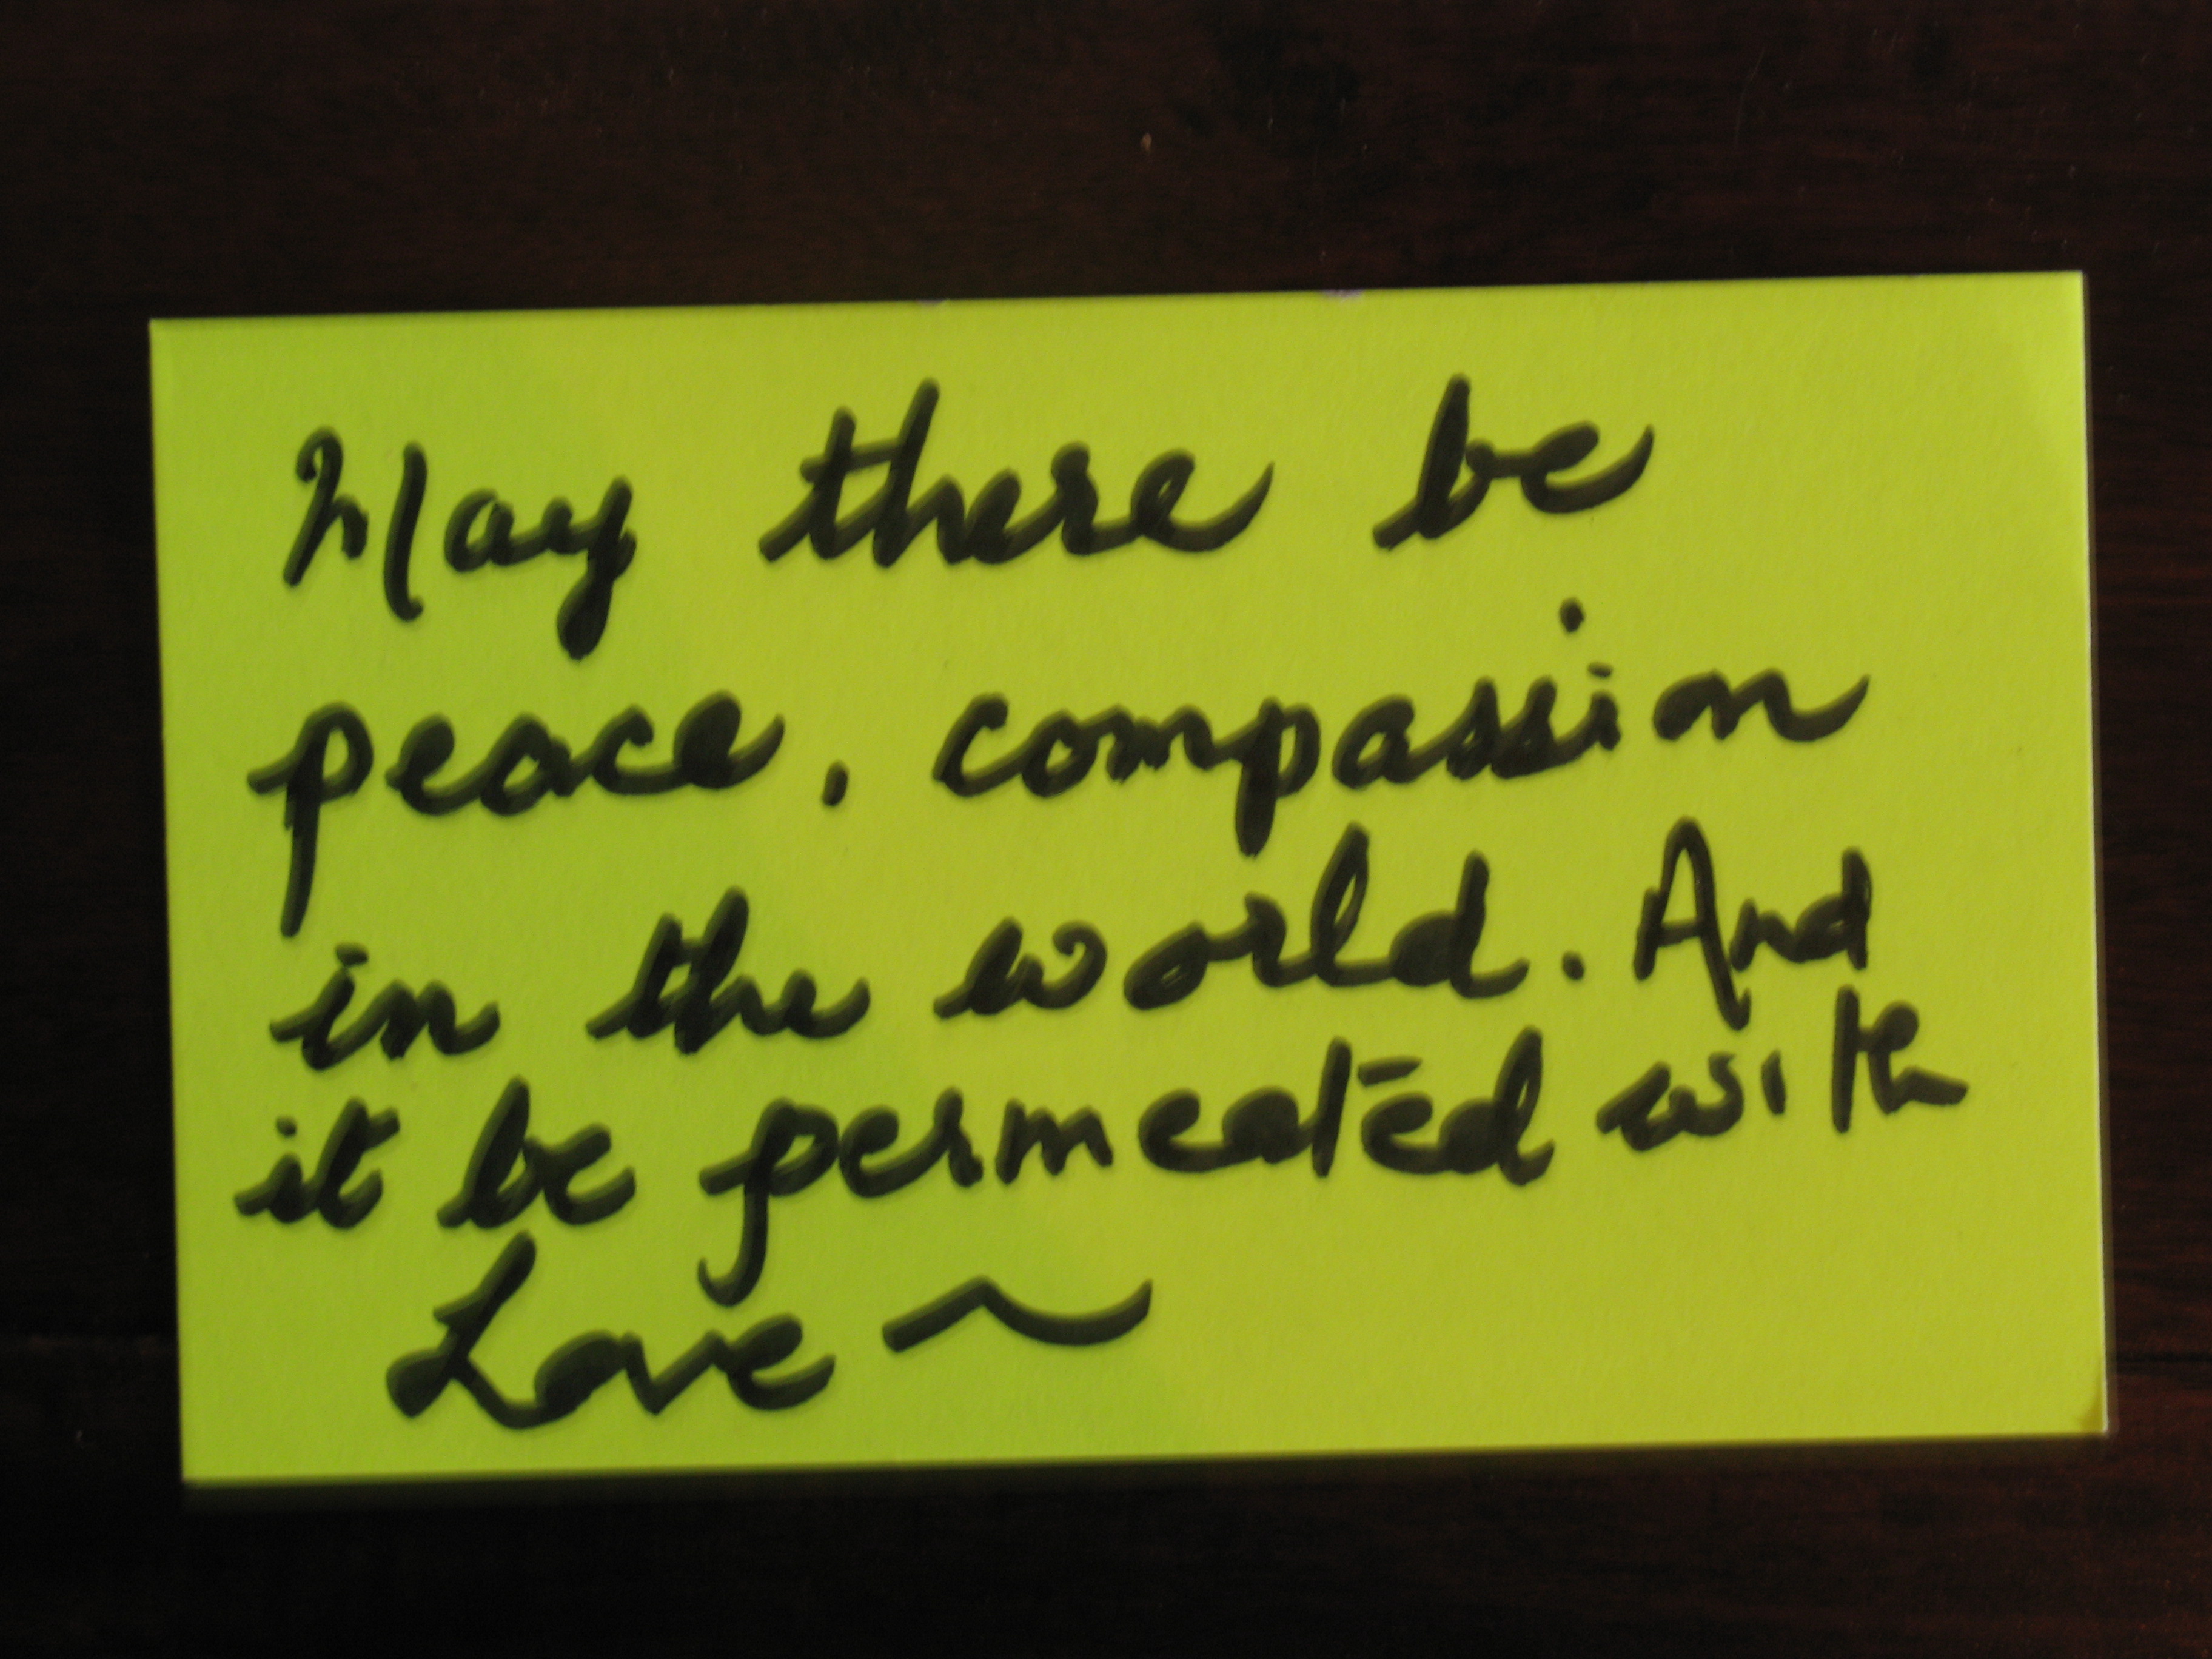 May there be
peace, compassion
in the world. And
it be permeated with
Love ~